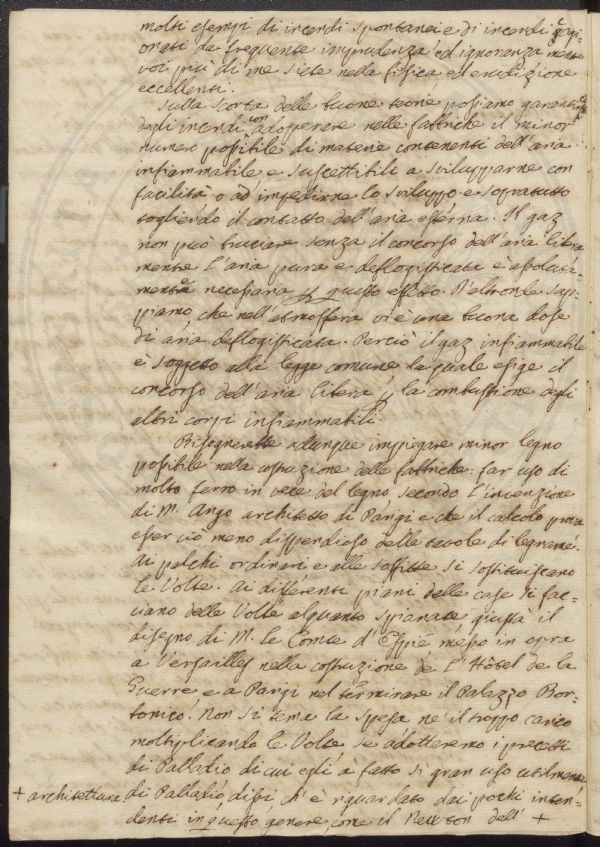 molti esempi di incendi spontanei e di incendi
orati da frequente imprudenza ed ignoranza
voi più di me siete nella fisica ed erudizione
eccellenti.
Sulla scorta delle buone teorie possiamo garantirci
dagli incendi con adoperare nelle fabbriche il minor
numero possibile di materie contenenti dell'aria
infiammabile e suscettibili a svilupparne con
facilità o ad impedirne lo sviluppo e sopratutto
togliendo il contatto dell'aria esterna. Il gaz
non può bruciare senza il concorso dell'aria libera
mentre l'aria pura e deflogisticata è assoluta-
mente necessaria p questo effetto. D'altronde sap-
piamo che nell'atmosfera vi è una buona dose
di aria deflogisticata. Perciò il gaz infiammabile
è soggetto alla legge comune la quale esige il
concorso dell'aria libera p la combustione degli
altri corpi infiammabili.
Bisognerebbe adunque impiegare minor legno
possibile nella costruzione delle fabbriche: far uso di
molto ferro in vece del legno secondo l'invenzione
di M. Ango architetto di Parigi e che il calcolo prova
esser ciò meno dispendioso delle tavole di legname.
Ai palchi ordinari e alle soffitte si sostituiscano
le Volte. Ai differenti piani delle case si fac-
ciano delle Volte alquanto spianate giusta il
disegno di M. le Comte d'Espié messo in opra
a Versailles nella costruzione de l'Hôtel de la
Guerre e a Parigi nel terminare il Palazzo Bor-
bonico. Non si tema la spesa nè il troppo carico
moltiplicando le Volte se adotteremo i precetti
di Palladio di cui egli à fatto sì gran uso utilmente
+ architettura di Palladio, dissi, ch'è riguardato dai pochi inten-
denti in questo genere come il Newton dell' +